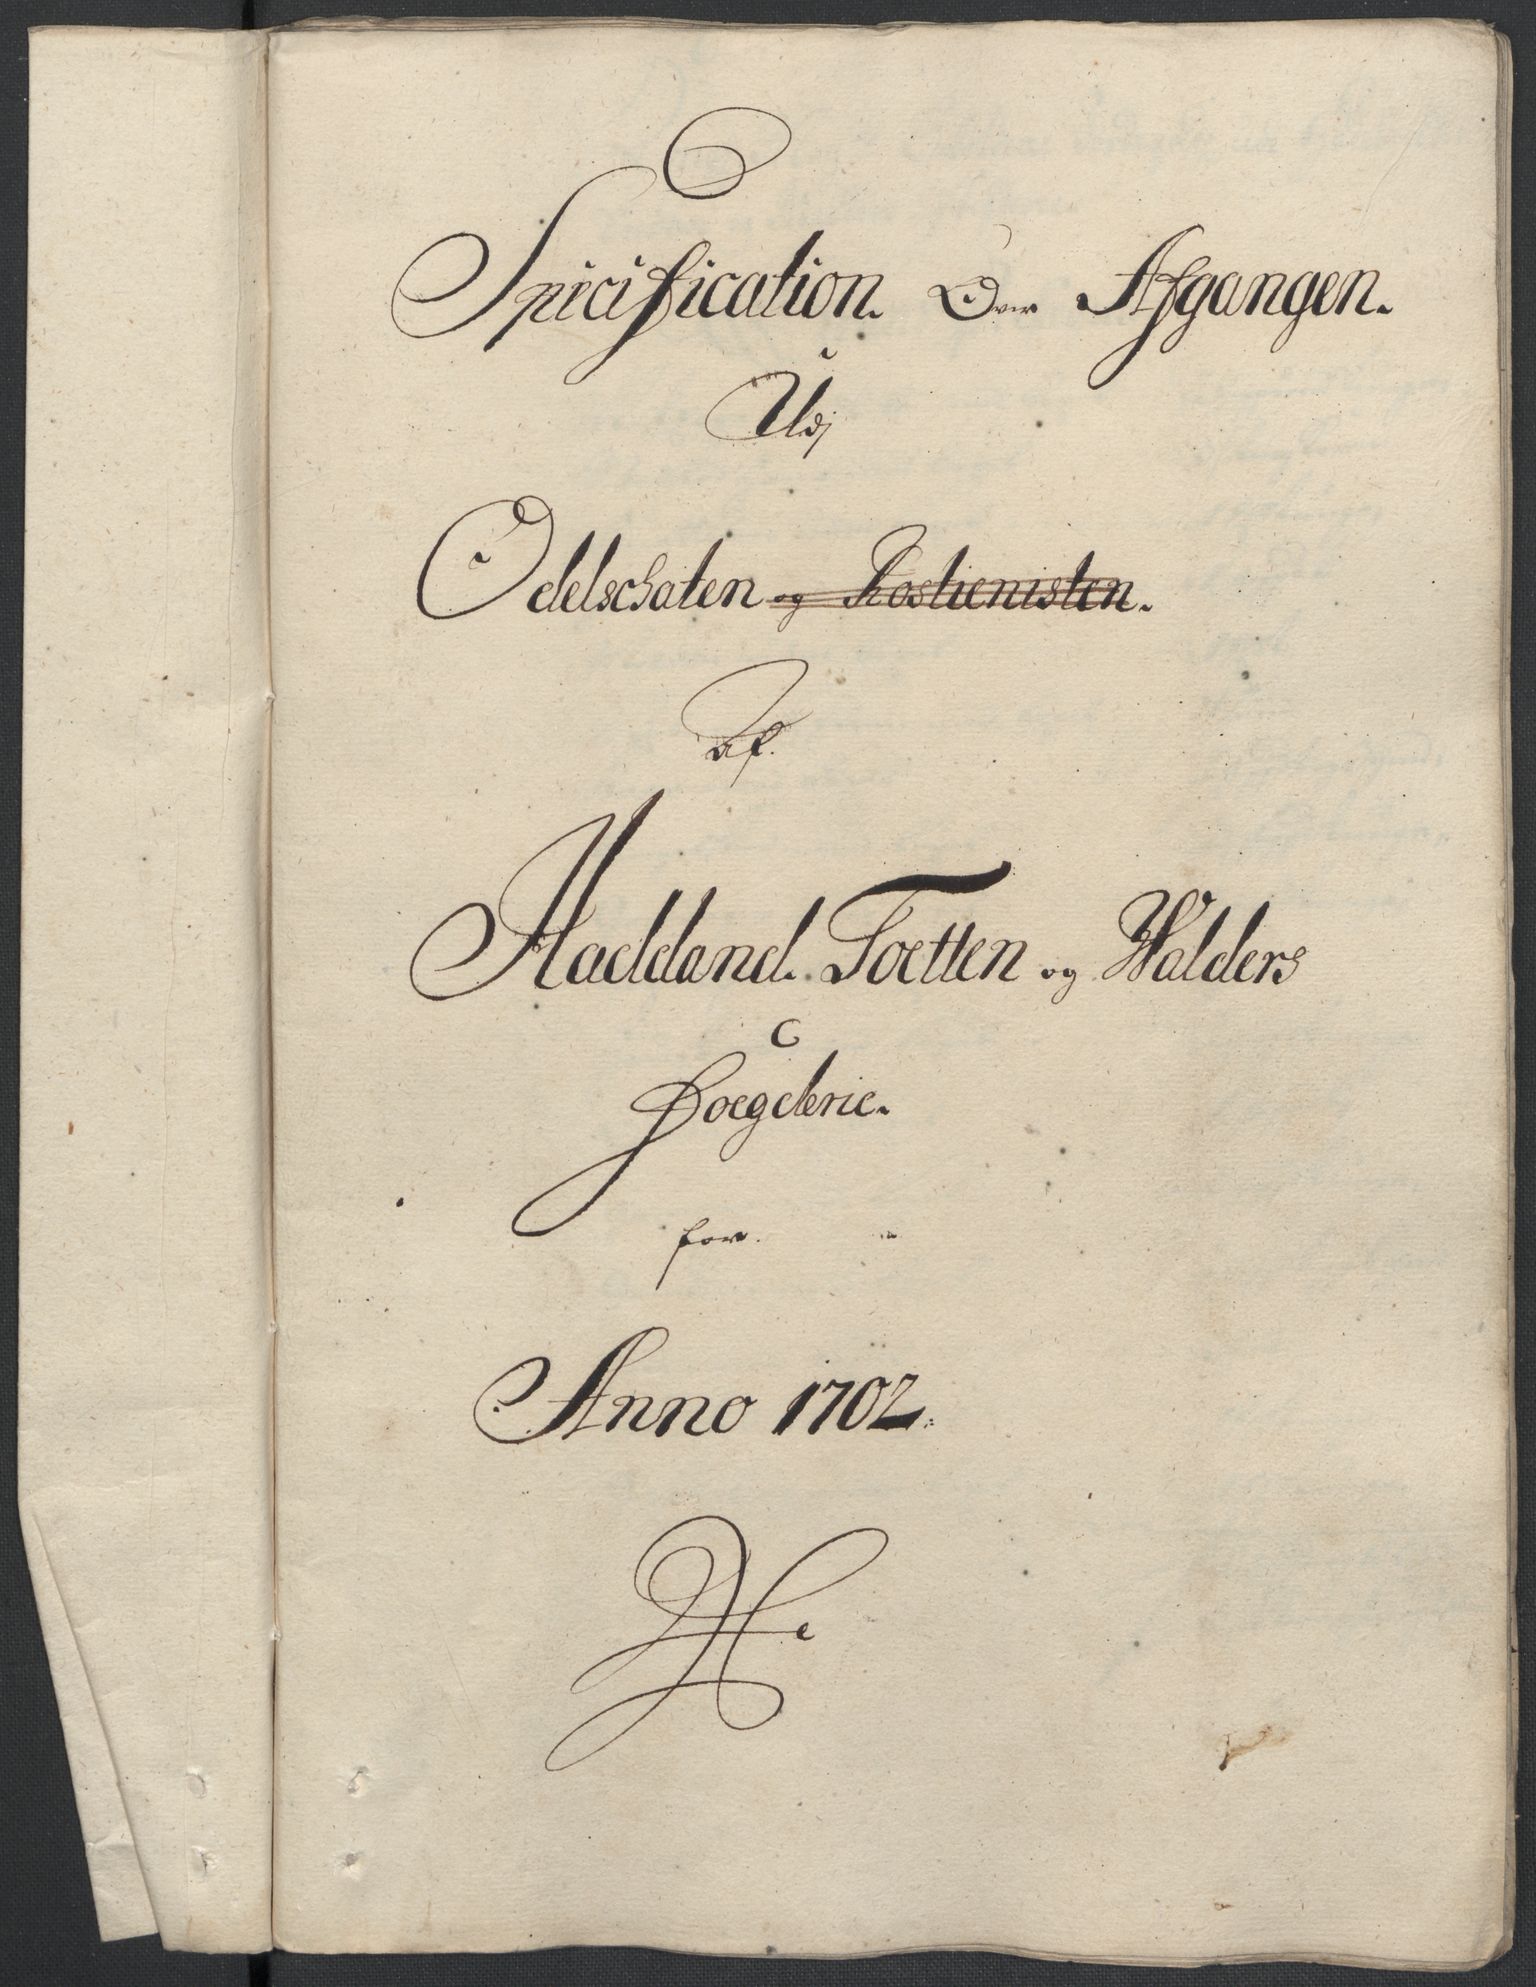 Specification Over Afgangen.
Udj
Odelschaten og Rostienisten.
Af.
Hadeland. Toetten og Walders
Foegderie.
for.
Anno 1702.